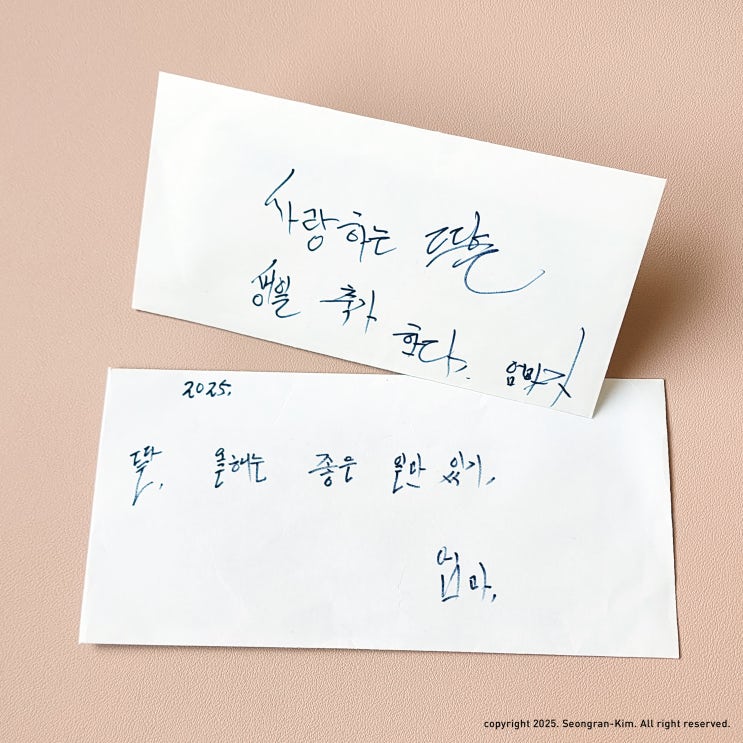 사랑하는 딸
생일 축가
한다. 엄마가
2025.
딸, 올해는 좋은 일만 있기,
엄마,
copyright 2025. Seongran-Kim. All right reserved.